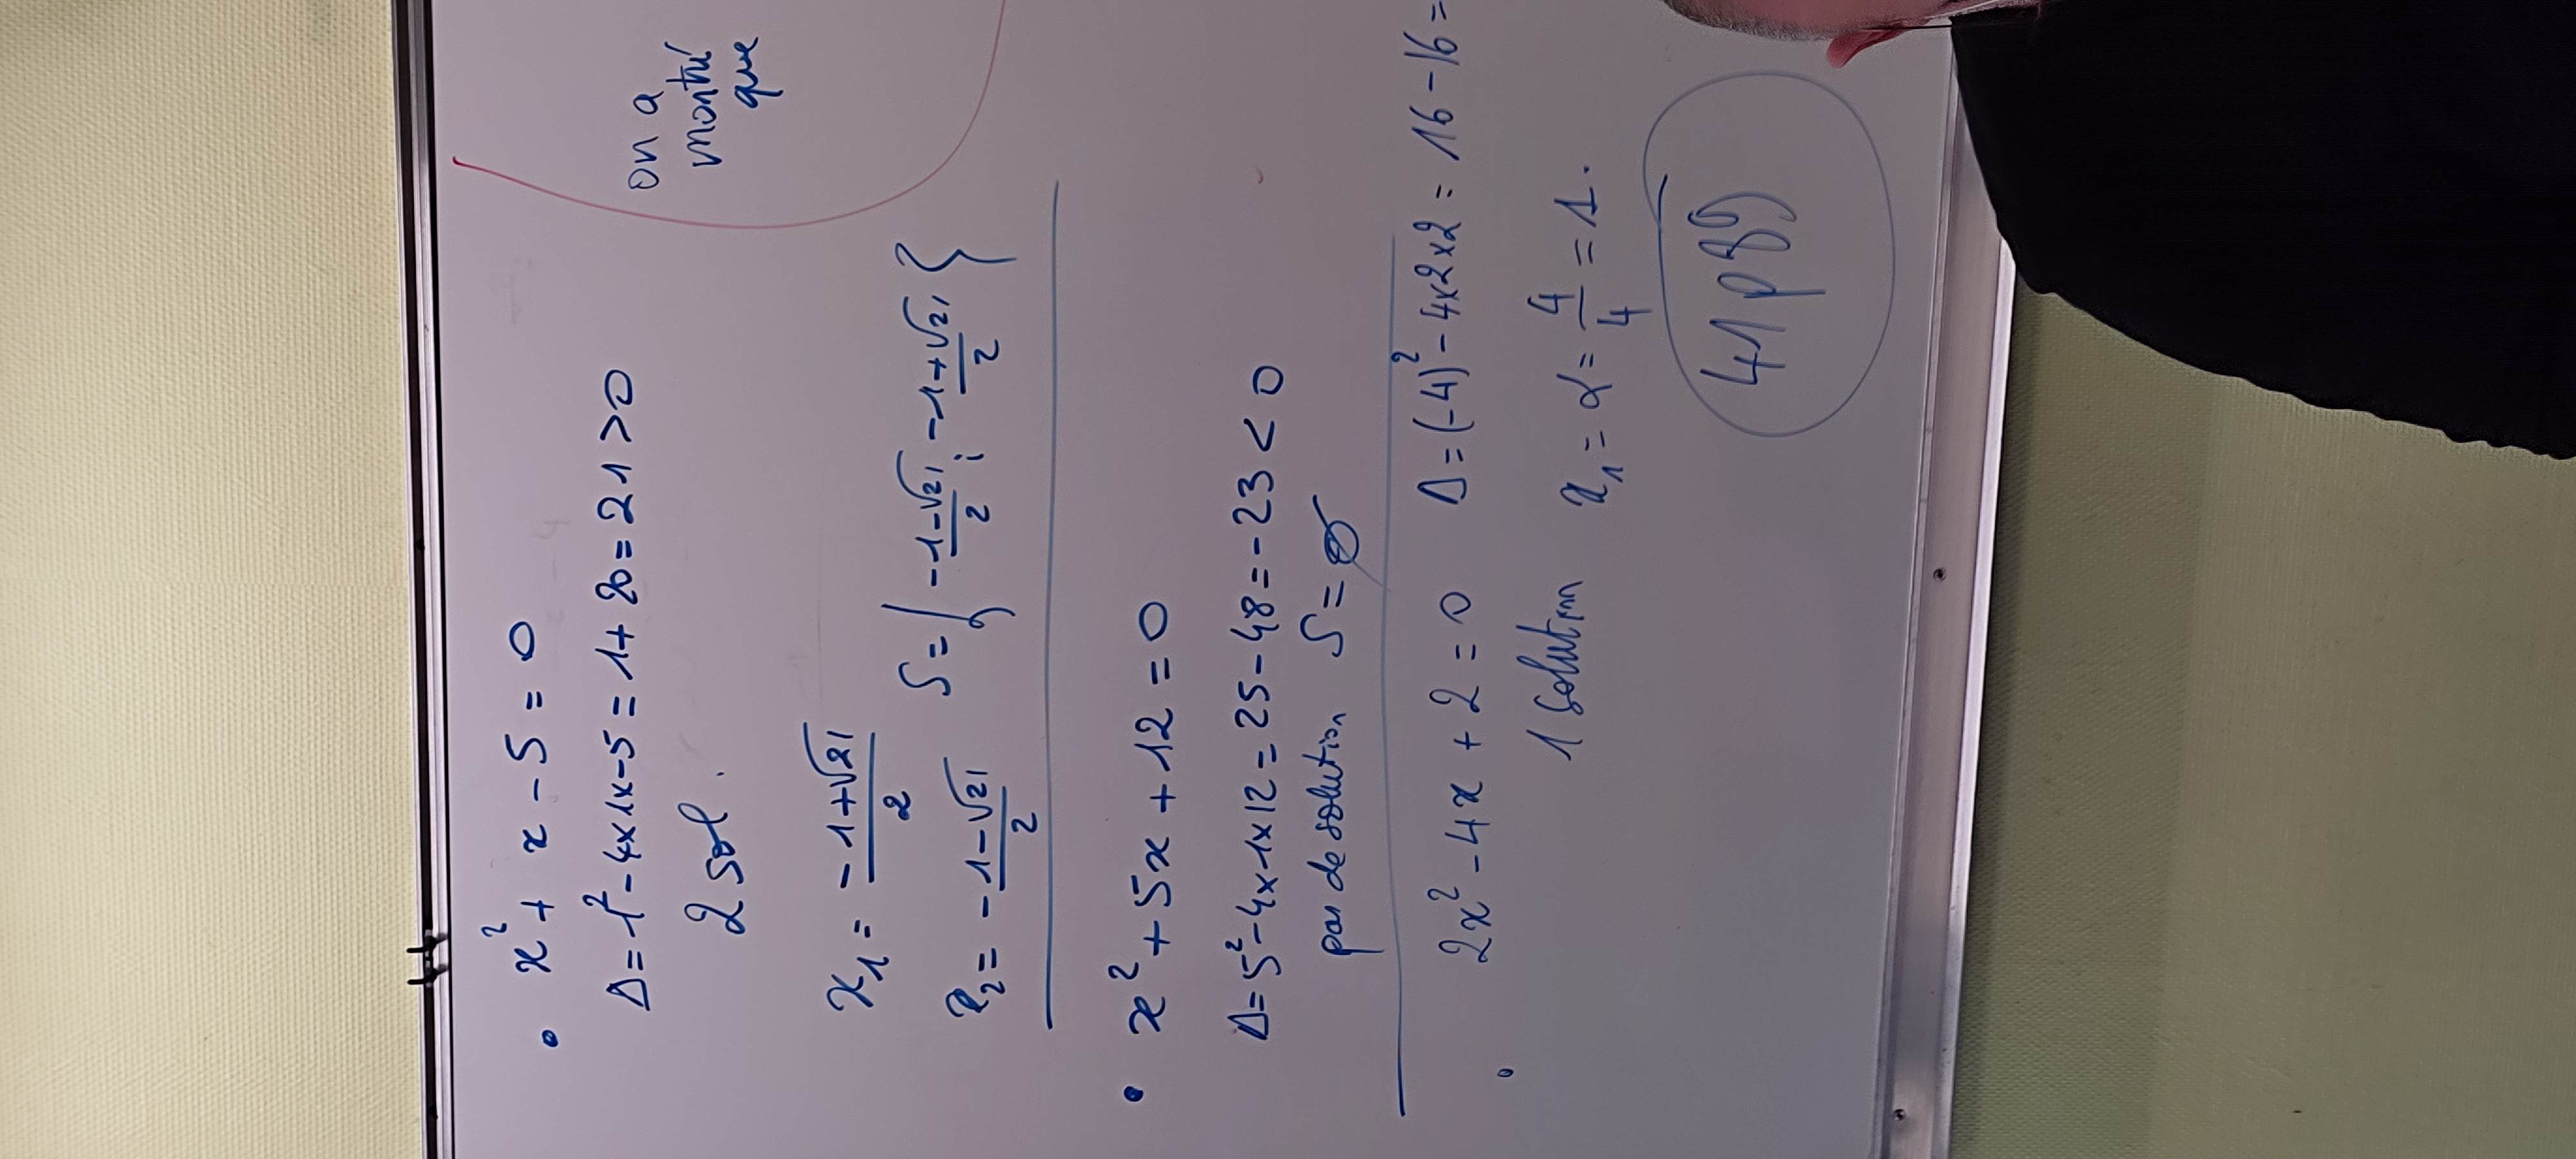 • x² + x - 5 = 0
Δ = 1² - 4x1x-5 = 1 + 20 = 21 > 0
2 sol.
x₁ = (-1+√21)/2
x₂ = (-1-√21)/2
S = { (-1-√21)/2 ; (-1+√21)/2 }
on a
montré
que
• x² + 5x + 12 = 0
Δ = 5² - 4x1x12 = 25 - 48 = -23 < 0
pas de solution S = ∅
• 2x² - 4x + 2 = 0 Δ = (-4)² - 4x2x2 = 16 - 16 =
1 solution x₁ = α = 4/4 = 1.
41 p 89